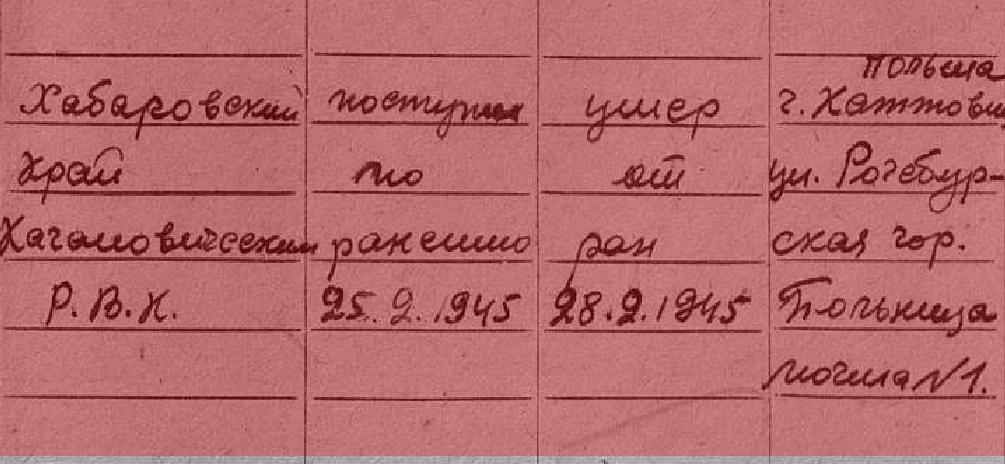 Хабаровский
край
Кагановический
Р.В.К.
поступил
по
ранению
25.2.1945
умер
от
ран
28.2.1945
Польша
г. Каттови
ул. Рогебур-
ская гор.
Больница
могила №1.